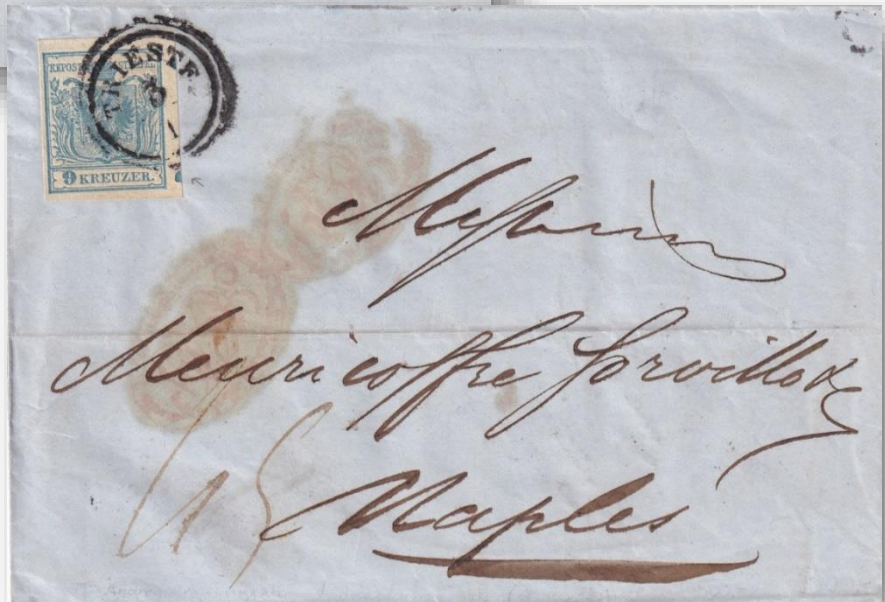 TRIESTE
9 KREUZER.
Messieurs
Meuricoffre Sorvillo & C
Naples